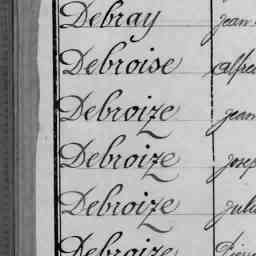 Debray jean
Debroise alfred
Debroize jean
Debroize josep
Debroize juli
Debroize Pierr